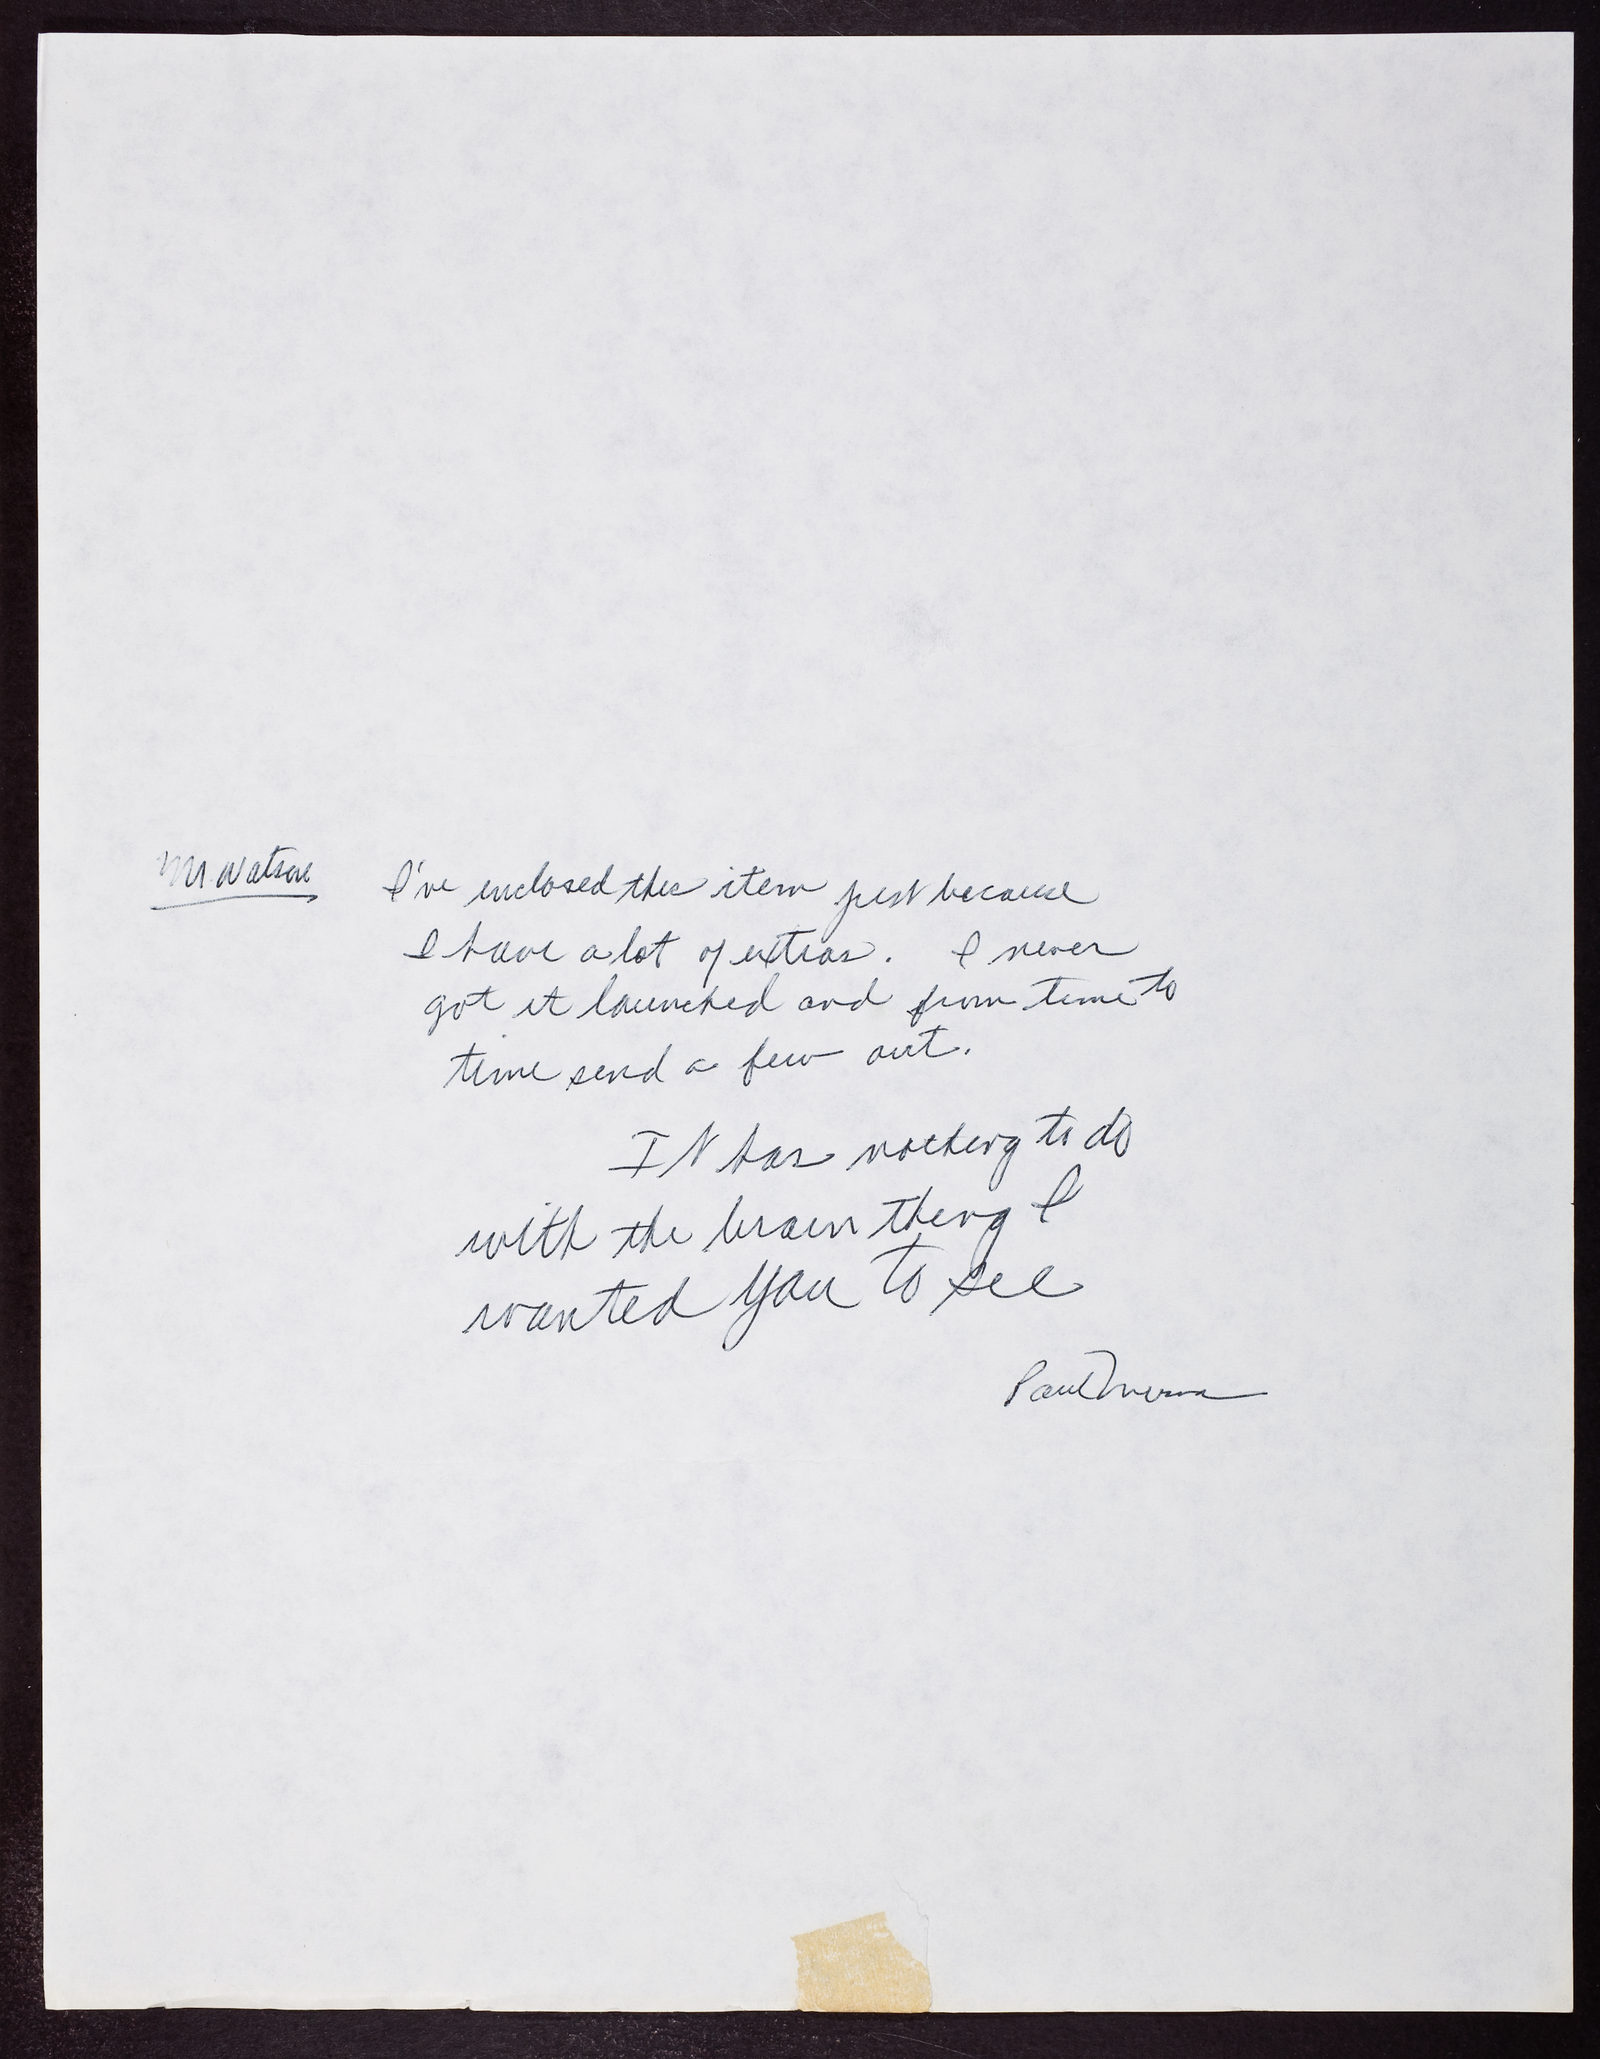 Mr Watson
I've enclosed this item just because
I have a lot of extras. I never
got it launched and from time to
time send a few out.
It has nothing to do
with the brain thing I
wanted you to see
Paul